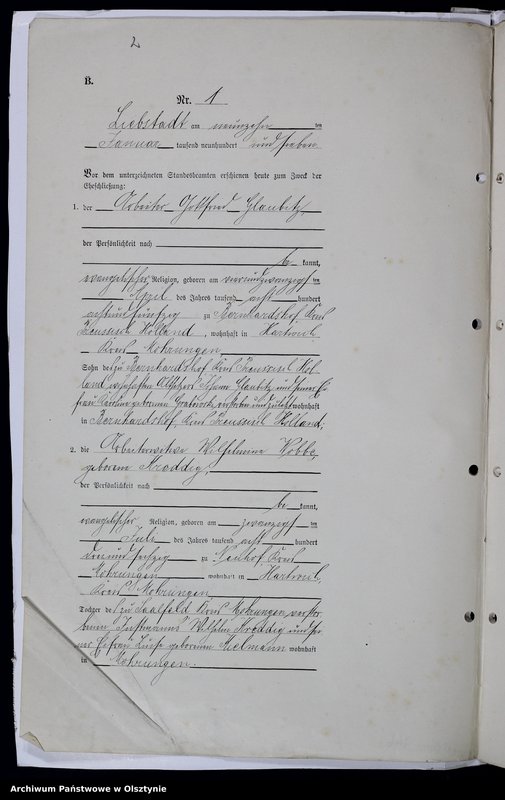 2
B.
Nr. 1
Liebstadt am neunzehn ten
Januar tausend neunhundert und sieben
Vor dem unterzeichneten Standesbeamten erschienen heute zum Zweck der
Eheschließung:
1. der Arbeiter Gottfried Glaubitz,
der Persönlichkeit nach
be kannt,
evangelischer Religion, geboren am vierundzwanzigsten
April des Jahres tausend acht hundert
achtundfünfzig zu Bernhardshof Kreis
Preussisch Holland, wohnhaft in Hartwich,
Kreis Mohrungen
Sohn des zu Bernhardshof Kreis Preussisch Hol-
land Glaubitz und seiner Ehe-
frau geborenen wohnhaft
in Bernhardshof, Kreis Preussisch Holland;
2. die Arbeiterwitwe Wilhelmine Kobbe,
geborene Kroddig,
der Persönlichkeit nach
be kannt,
evangelischer Religion, geboren am zwanzigsten
Juli des Jahres tausend acht hundert
dreiundsechzig zu Neuhof, Kreis
Mohrungen, wohnhaft in Hartwich,
Kreis Mohrungen
Tochter des zu Saalfeld Kreis Mohrungen verstor-
benen Instmanns Wilhelm Kroddig und sei-
ner Ehefrau geborenen wohnhaft
in Mohrungen.
Archiwum Państwowe w Olsztynie